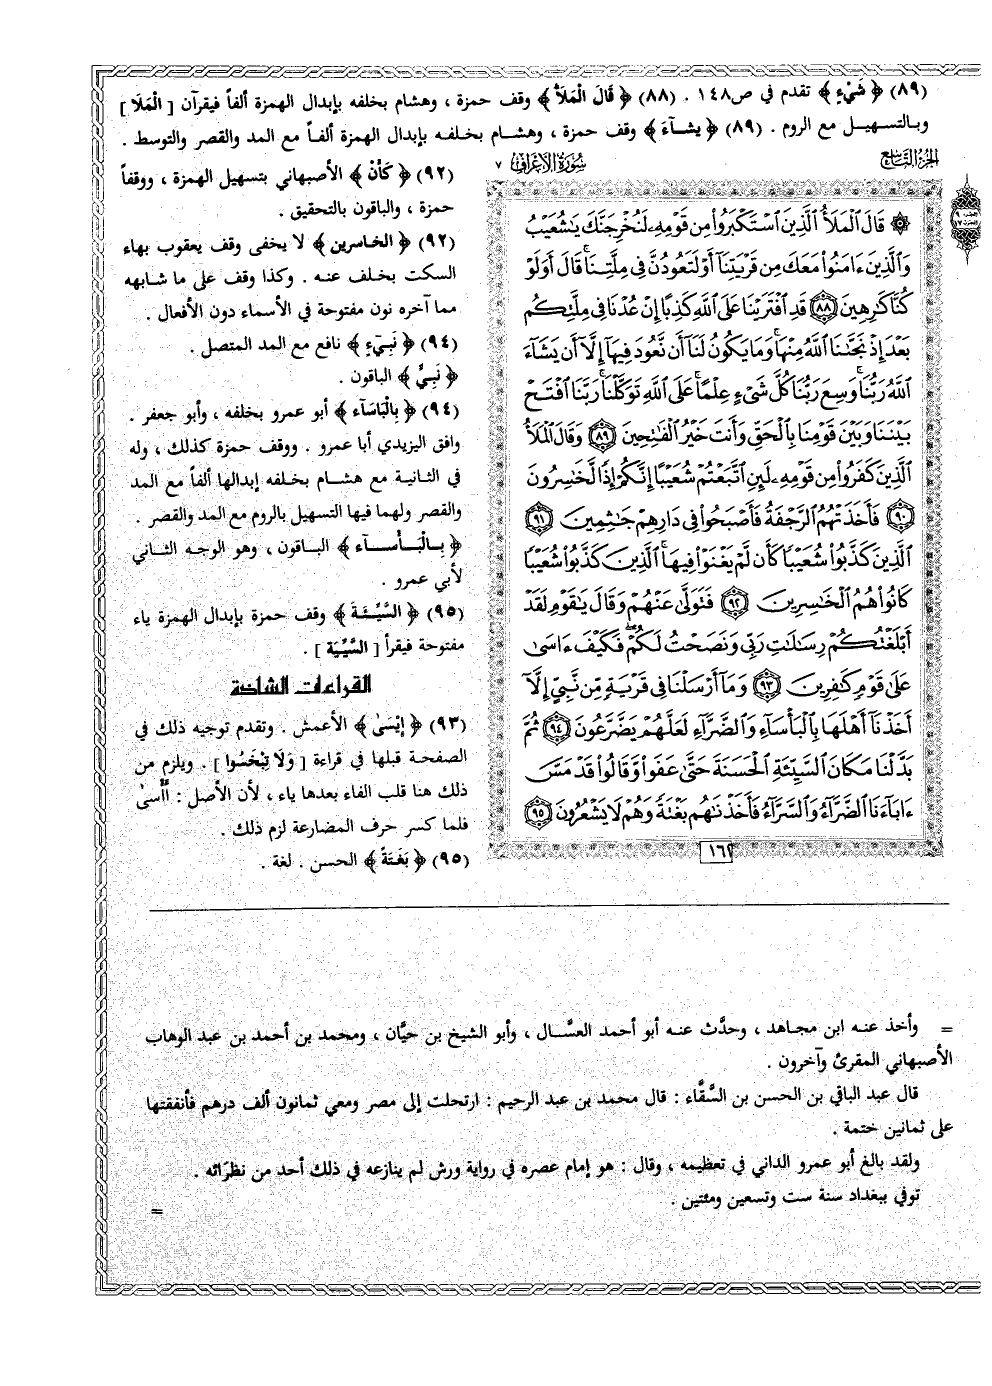 (٨٩) ﴿ شَيْءٍ ﴾ تقدم في ص١٤٨ . (٨٨) ﴿ قَالَ الْمَلَأُ ﴾ وقف حمزة ، وهشام بخلفه بإبدال الهمزة ألفاً فيقرآن [ الْمَلَا ]
وبالتسهيل مع الروم . (٨٩) ﴿ يشآءَ ﴾ وقف حمزة ، وهشام بخلفه بإبدال الهمزة ألفاً مع المد والقصر والتوسط .
الجزء التاسع
سورة الأعراف ٧
قَالَ ٱلْمَلَأُ ٱلَّذِينَ ٱسْتَكْبَرُوا۟ مِن قَوْمِهِۦ لَنُخْرِجَنَّكَ يَٰشُعَيْبُ
وَٱلَّذِينَ ءَامَنُوا۟ مَعَكَ مِن قَرْيَتِنَآ أَوْ لَتَعُودُنَّ فِى مِلَّتِنَا ۚ قَالَ أَوَلَوْ
كُنَّا كَٰرِهِينَ ٨٨ قَدِ ٱفْتَرَيْنَا عَلَى ٱللَّهِ كَذِبًا إِنْ عُدْنَا فِى مِلَّتِكُم
بَعْدَ إِذْ نَجَّىٰنَا ٱللَّهُ مِنْهَا ۚ وَمَا يَكُونُ لَنَآ أَن نَّعُودَ فِيهَآ إِلَّآ أَن يَشَآءَ
ٱللَّهُ رَبُّنَا ۚ وَسِعَ رَبُّنَا كُلَّ شَىْءٍ عِلْمًا ۚ عَلَى ٱللَّهِ تَوَكَّلْنَا ۚ رَبَّنَا ٱفْتَحْ
بَيْنَنَا وَبَيْنَ قَوْمِنَا بِٱلْحَقِّ وَأَنتَ خَيْرُ ٱلْفَٰتِحِينَ ٨٩ وَقَالَ ٱلْمَلَأُ
ٱلَّذِينَ كَفَرُوا۟ مِن قَوْمِهِۦ لَئِنِ ٱتَّبَعْتُمْ شُعَيْبًا إِنَّكُمْ إِذًا لَّخَٰسِرُونَ
٩٠ فَأَخَذَتْهُمُ ٱلرَّجْفَةُ فَأَصْبَحُوا۟ فِى دَارِهِمْ جَٰثِمِينَ ٩١
ٱلَّذِينَ كَذَّبُوا۟ شُعَيْبًا كَأَن لَّمْ يَغْنَوْا۟ فِيهَا ۚ ٱلَّذِينَ كَذَّبُوا۟ شُعَيْبًا
كَانُوا۟ هُمُ ٱلْخَٰسِرِينَ ٩٢ فَتَوَلَّىٰ عَنْهُمْ وَقَالَ يَٰقَوْمِ لَقَدْ
أَبْلَغْتُكُمْ رِسَٰلَٰتِ رَبِّى وَنَصَحْتُ لَكُمْ ۖ فَكَيْفَ ءَاسَىٰ
عَلَىٰ قَوْمٍ كَٰفِرِينَ ٩٣ وَمَآ أَرْسَلْنَا فِى قَرْيَةٍ مِّن نَّبِىٍّ إِلَّآ
أَخَذْنَآ أَهْلَهَا بِٱلْبَأْسَآءِ وَٱلضَّرَّآءِ لَعَلَّهُمْ يَضَّرَّعُونَ ٩٤ ثُمَّ
بَدَّلْنَا مَكَانَ ٱلسَّيِّئَةِ ٱلْحَسَنَةَ حَتَّىٰ عَفَوا۟ وَّقَالُوا۟ قَدْ مَسَّ
ءَابَآءَنَا ٱلضَّرَّآءُ وَٱلسَّرَّآءُ فَأَخَذْنَٰهُم بَغْتَةً وَهُمْ لَا يَشْعُرُونَ ٩٥
١٦٢
(٩٢) ﴿ كَأَنْ ﴾ الأصبهاني بتسهيل الهمزة ، ووقفاً
حمزة ، والباقون بالتحقيق .
(٩٢) ﴿ الخاسرين ﴾ لا يخفى وقف يعقوب بهاء
السكت بخلف عنه . وكذا وقف على ما شابهه
مما آخره نون مفتوحة في الأسماء دون الأفعال .
(٩٤) ﴿ نَبِيءٍ ﴾ نافع مع المد المتصل .
﴿ نَبِيٍّ ﴾ الباقون .
(٩٤) ﴿ بِالْبَاسَآءِ ﴾ أبو عمرو بخلفه ، وأبو جعفر .
وافق اليزيدي أبا عمرو . ووقف حمزة كذلك ، وله
في الثانية مع هشام بخلفه إبدالها ألفاً مع المد
والقصر ولهما فيها التسهيل بالروم مع المد والقصر .
﴿ بِالْبَأْسَآءِ ﴾ الباقون ، وهو الوجه الثاني
لأبي عمرو .
(٩٥) ﴿ السَّيِّئَةَ ﴾ وقف حمزة بإبدال الهمزة ياء
مفتوحة فيقرأ [ السَّيِّيَة ] .
القراءات الشاذة
(٩٣) ﴿ إِيْسَىٰ ﴾ الأعمش . وتقدم توجيه ذلك في
الصفحة قبلها في قراءة [ وَلَا تِبْخَسُوا ] . ويلزم من
ذلك هنا قلب الفاء بعدها ياء ، لأن الأصل : أَأْسىٰ
فلما كسر حرف المضارعة لزم ذلك .
(٩٥) ﴿ بَغَتَةً ﴾ الحسن . لغة .
= وأخذ عنه ابن مجاهد ، وحدَّث عنه أبو أحمد العسَّال ، وأبو الشيخ بن حيَّان ، ومحمد بن أحمد بن عبد الوهاب
الأصبهاني المقرئ وآخرون .
قال عبد الباقي بن الحسن بن السَّقَّاء : قال محمد بن عبد الرحيم : ارتحلت إلى مصر ومعي ثمانون ألف درهم فأنفقتها
على ثمانين ختمة .
ولقد بالغ أبو عمرو الداني في تعظيمه ، وقال : هو إمام عصره في رواية ورش لم ينازعه في ذلك أحد من نظرائه .
توفي ببغداد سنة ست وتسعين ومئتين .
=